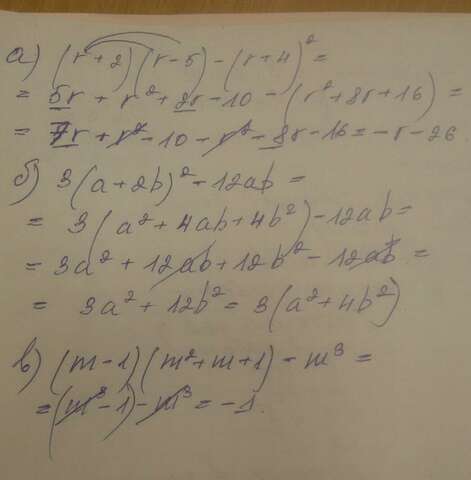 а) (r+2)(r-5)-(r+4)²=
= 5r + r² + 2r - 10 - (r²+8r+16) =
= 7r + r² - 10 - r² - 8r - 16 = -r - 26
б) 3(a+2b)² - 12ab =
= 3(a² + 4ab + 4b²) - 12ab =
= 3a² + 12ab + 12b² - 12ab =
= 3a² + 12b² = 3(a² + 4b²)
в) (m-1)(m²+m+1) - m³ =
= (m³-1) - m³ = -1.